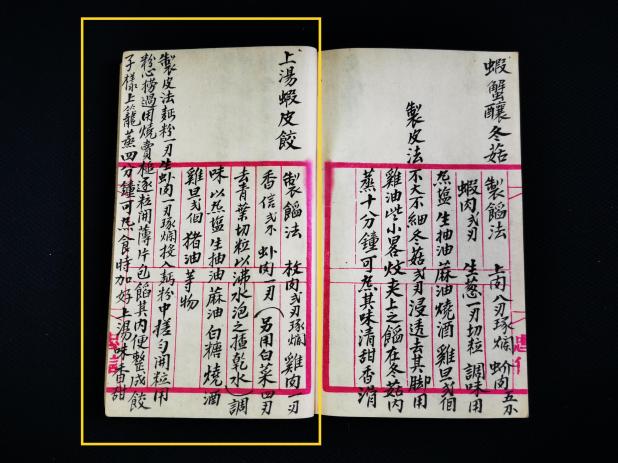 蝦蟹釀冬菇
製餡法 上肉八刄琢爛 蚧肉五小
蝦肉弍刄 生葱一刄切粒 調味用
熟塩 生抽油 麻油 燒酒 雞旦弍個
雞油些小畧炆夾上之餡在冬菇內
製皮法不大不細冬菇弍刄浸透去其脚用
蒸十分鐘可熟其味清甜香滑
上湯蝦皮餃
製餡法 枚肉弍刄琢爛 雞肉一刄
香信弍小 虾肉一刄(另用白菜四刄
去青葉切粒以沸水泡之揸乾水)調
味以熟塩 生抽油 蔴油 白糖 燒酒
雞旦弍個 猪油 等物
製皮法麵粉一刄生虾肉一刄琢爛投入麵粉中搓勻開粒用
粉心撈過用燒賣槌逐粒開薄片包餡其內便整成餃
子樣上籠蒸四分鐘可熟食時加好上湯味香甜